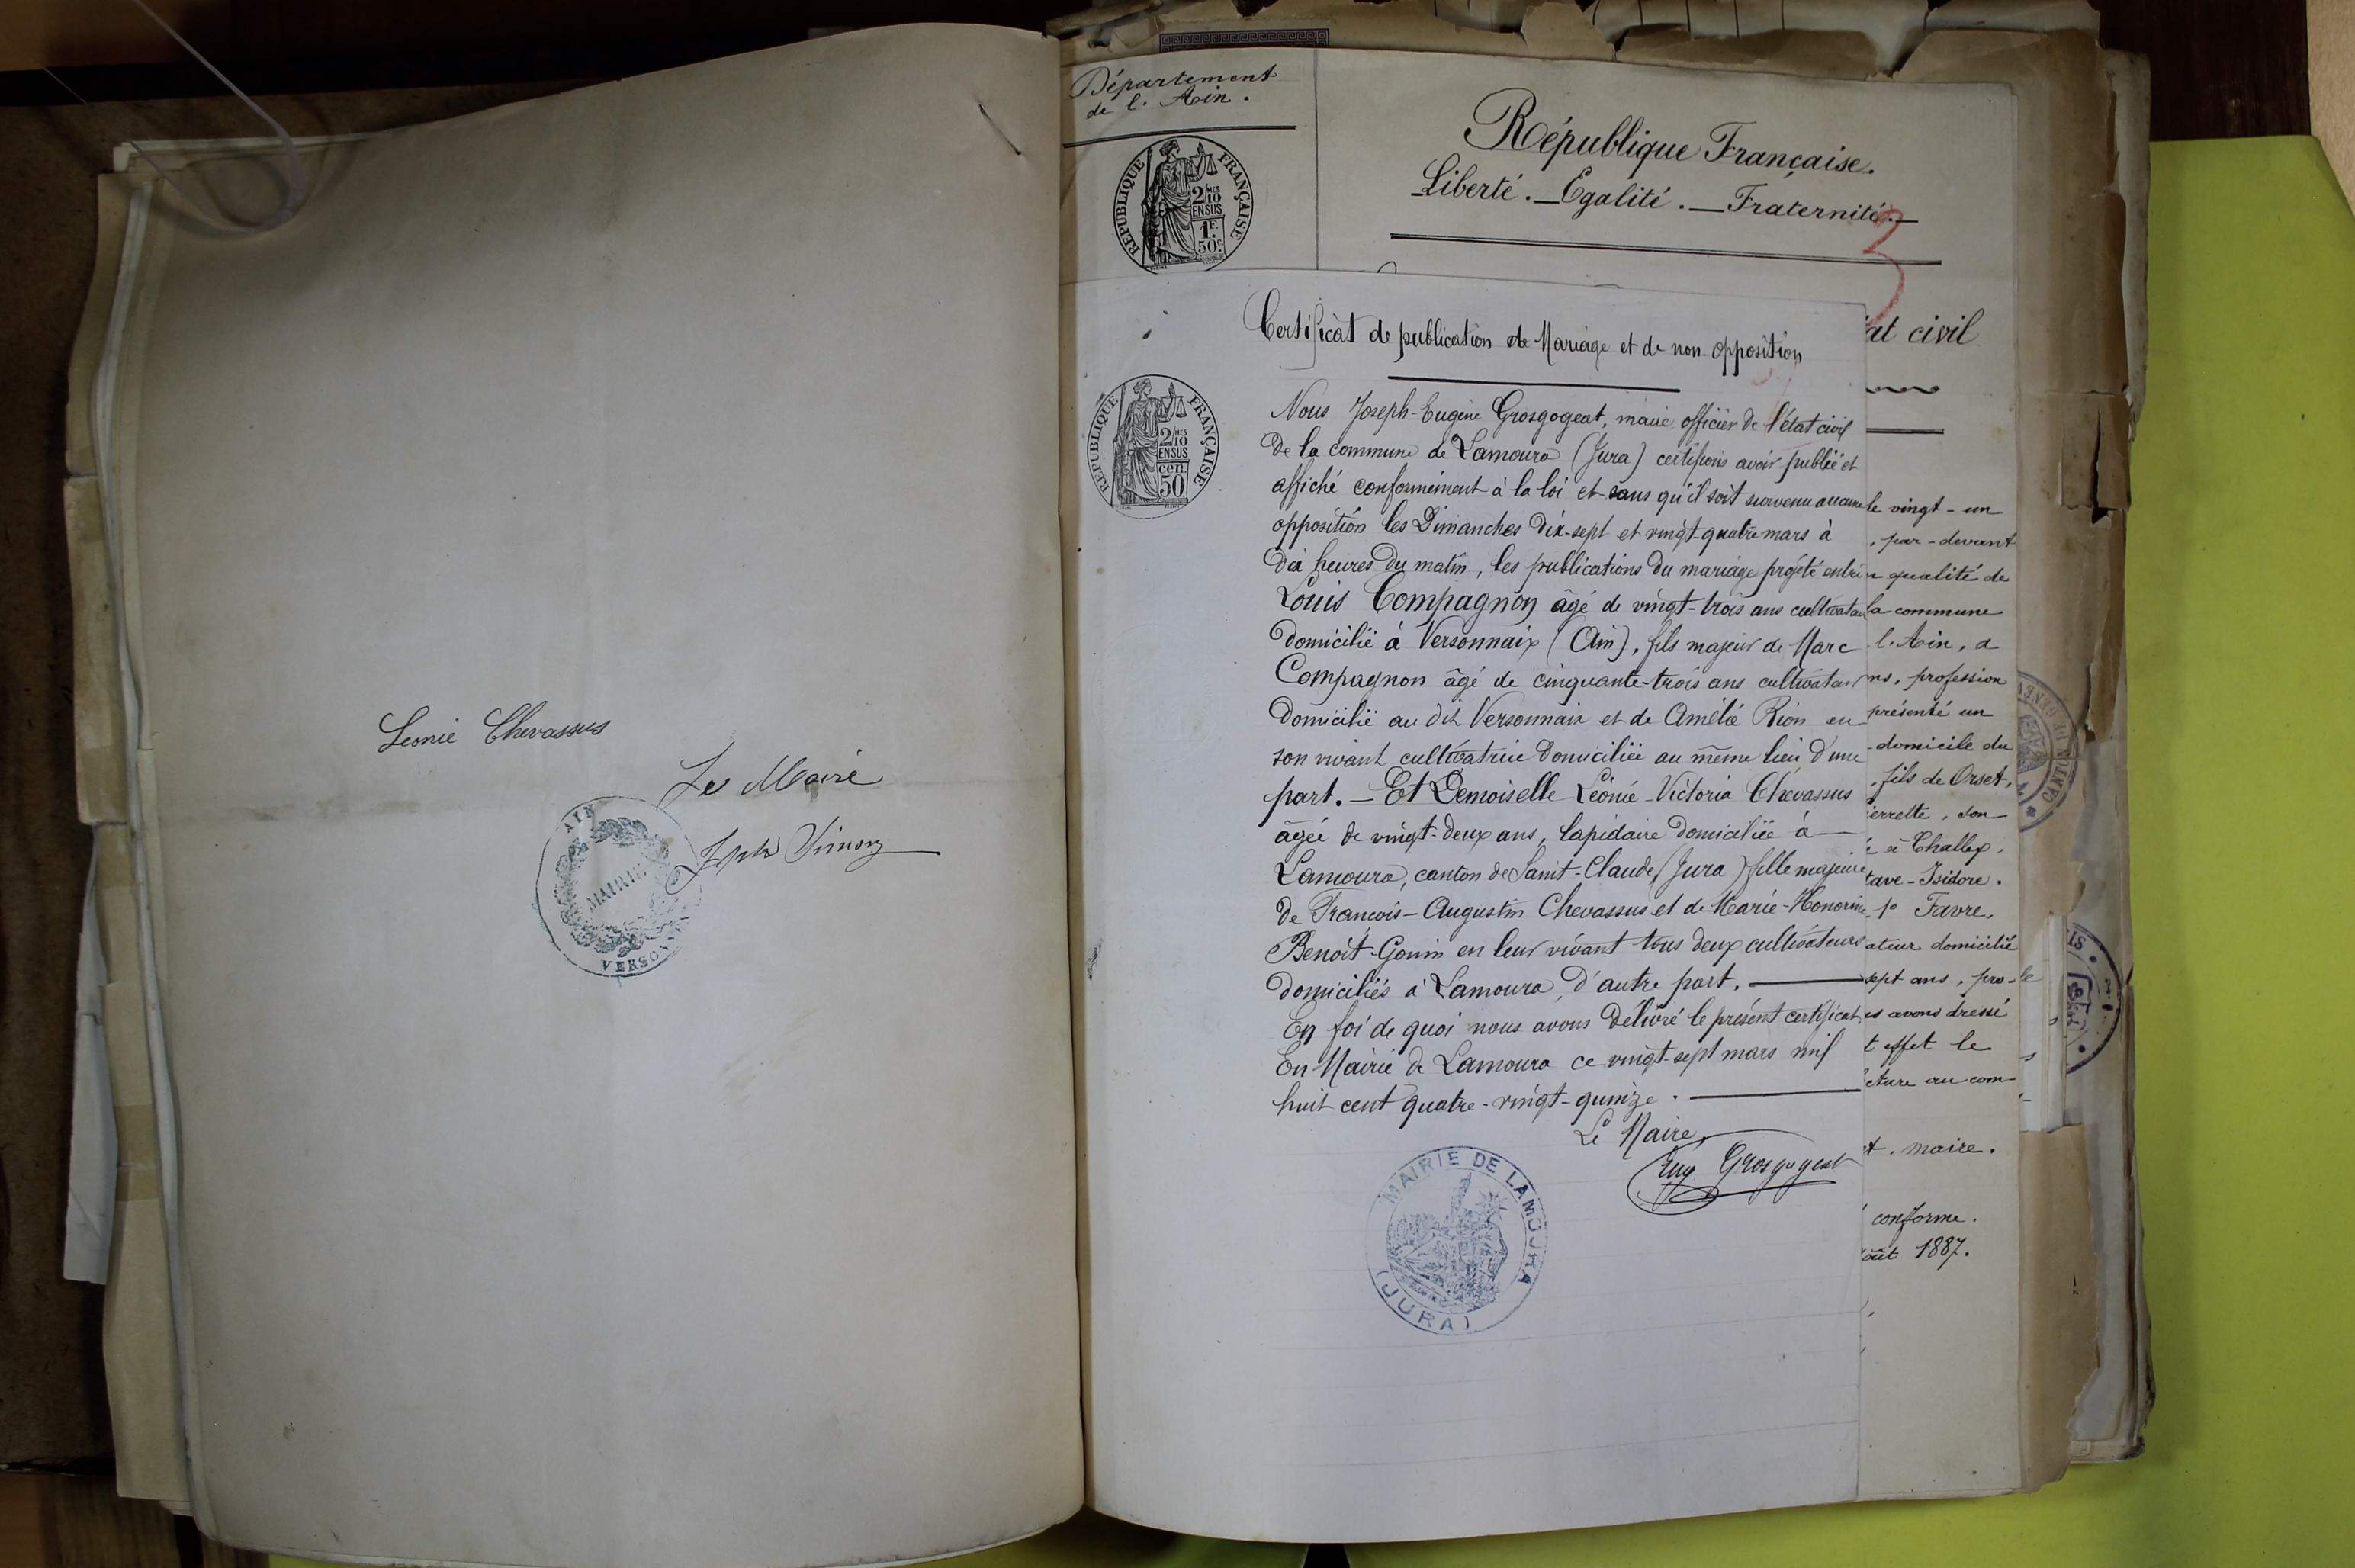 Leonie Chevassus
Le Maire
AIN
MAIRIE
VERSO
Département
de l'Ain.
RÉPUBLIQUE FRANÇAISE
2/10 MES
EN SUS
1F.
50c.
République Française.
Liberté. — Egalité. — Fraternité. —
3
Certificat de publication de Mariage et de non-opposition
RÉPUBLIQUE FRANÇAISE
2/10 MES
EN SUS
cen.
50
Nous Joseph-Eugène Grosgogeat, maire officier de l'état civil
de la commune de Lamoura (Jura) certifions avoir publié et
affiché conformément à la loi et sans qu'il soit survenu aucune
opposition les Dimanches dix-sept et vingt-quatre mars à
dix heures du matin, les publications du mariage projeté entre
Louis Compagnon âgé de vingt-trois ans cultivateur
domicilié à Versonnaix (Ain), fils majeur de Marc
Compagnon âgé de cinquante-trois ans cultivateur
domicilié au dit Versonnaix et de Amélie Rion en
son vivant cultivatrice domiciliée au même lieu d'une
part. — Et Demoiselle Léonie-Victoria Chevassus
âgée de vingt-deux ans, lapidaire domiciliée à —
Lamoura, canton de Saint-Claude (Jura) fille majeure
de François-Augustin Chevassus et de Marie-Honorine
Benoît-Gonin en leur vivant tous deux cultivateurs
domiciliés à Lamoura, d'autre part. —
En foi de quoi nous avons délivré le présent certificat.
En Mairie de Lamoura ce vingt-sept mars mil
huit cent quatre-vingt-quinze. —
Le Maire,
Eug Grosgogeat
MAIRIE DE LAMOURA
(JURA)
at civil
le vingt-un
, par-devant
qualité de
la commune
l'Ain, a
ns, profession
présenté un
domicile du
, fils de Orset,
ierrette, son
à Challex,
tave-Isidore.
1° Favre,
ateur domicilié
sept ans, pro-
es avons dressé
t effet le
cture au com-
t, maire.
conforme.
oût 1887.
CANTON DE GENEV